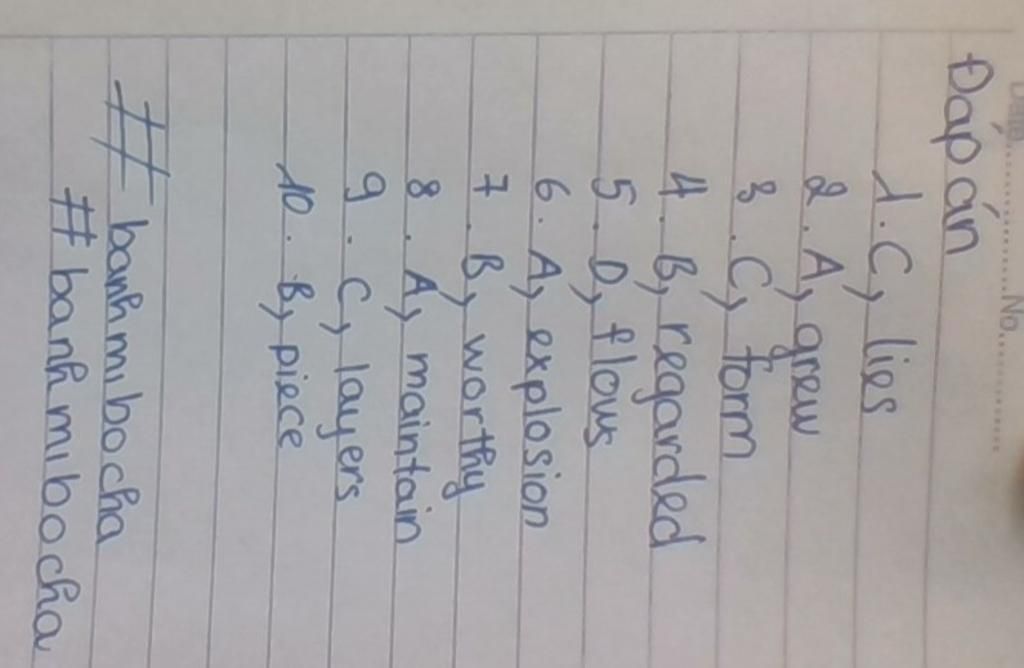 Date............No............
Đáp án
1. C, lies
2. A, grew
3. C, form
4. B, regarded
5. D, flows
6. A, explosion
7. B, worthy
8. A, maintain
9. C, layers
10. B, piece
# banhmibocha
# banhmibocha